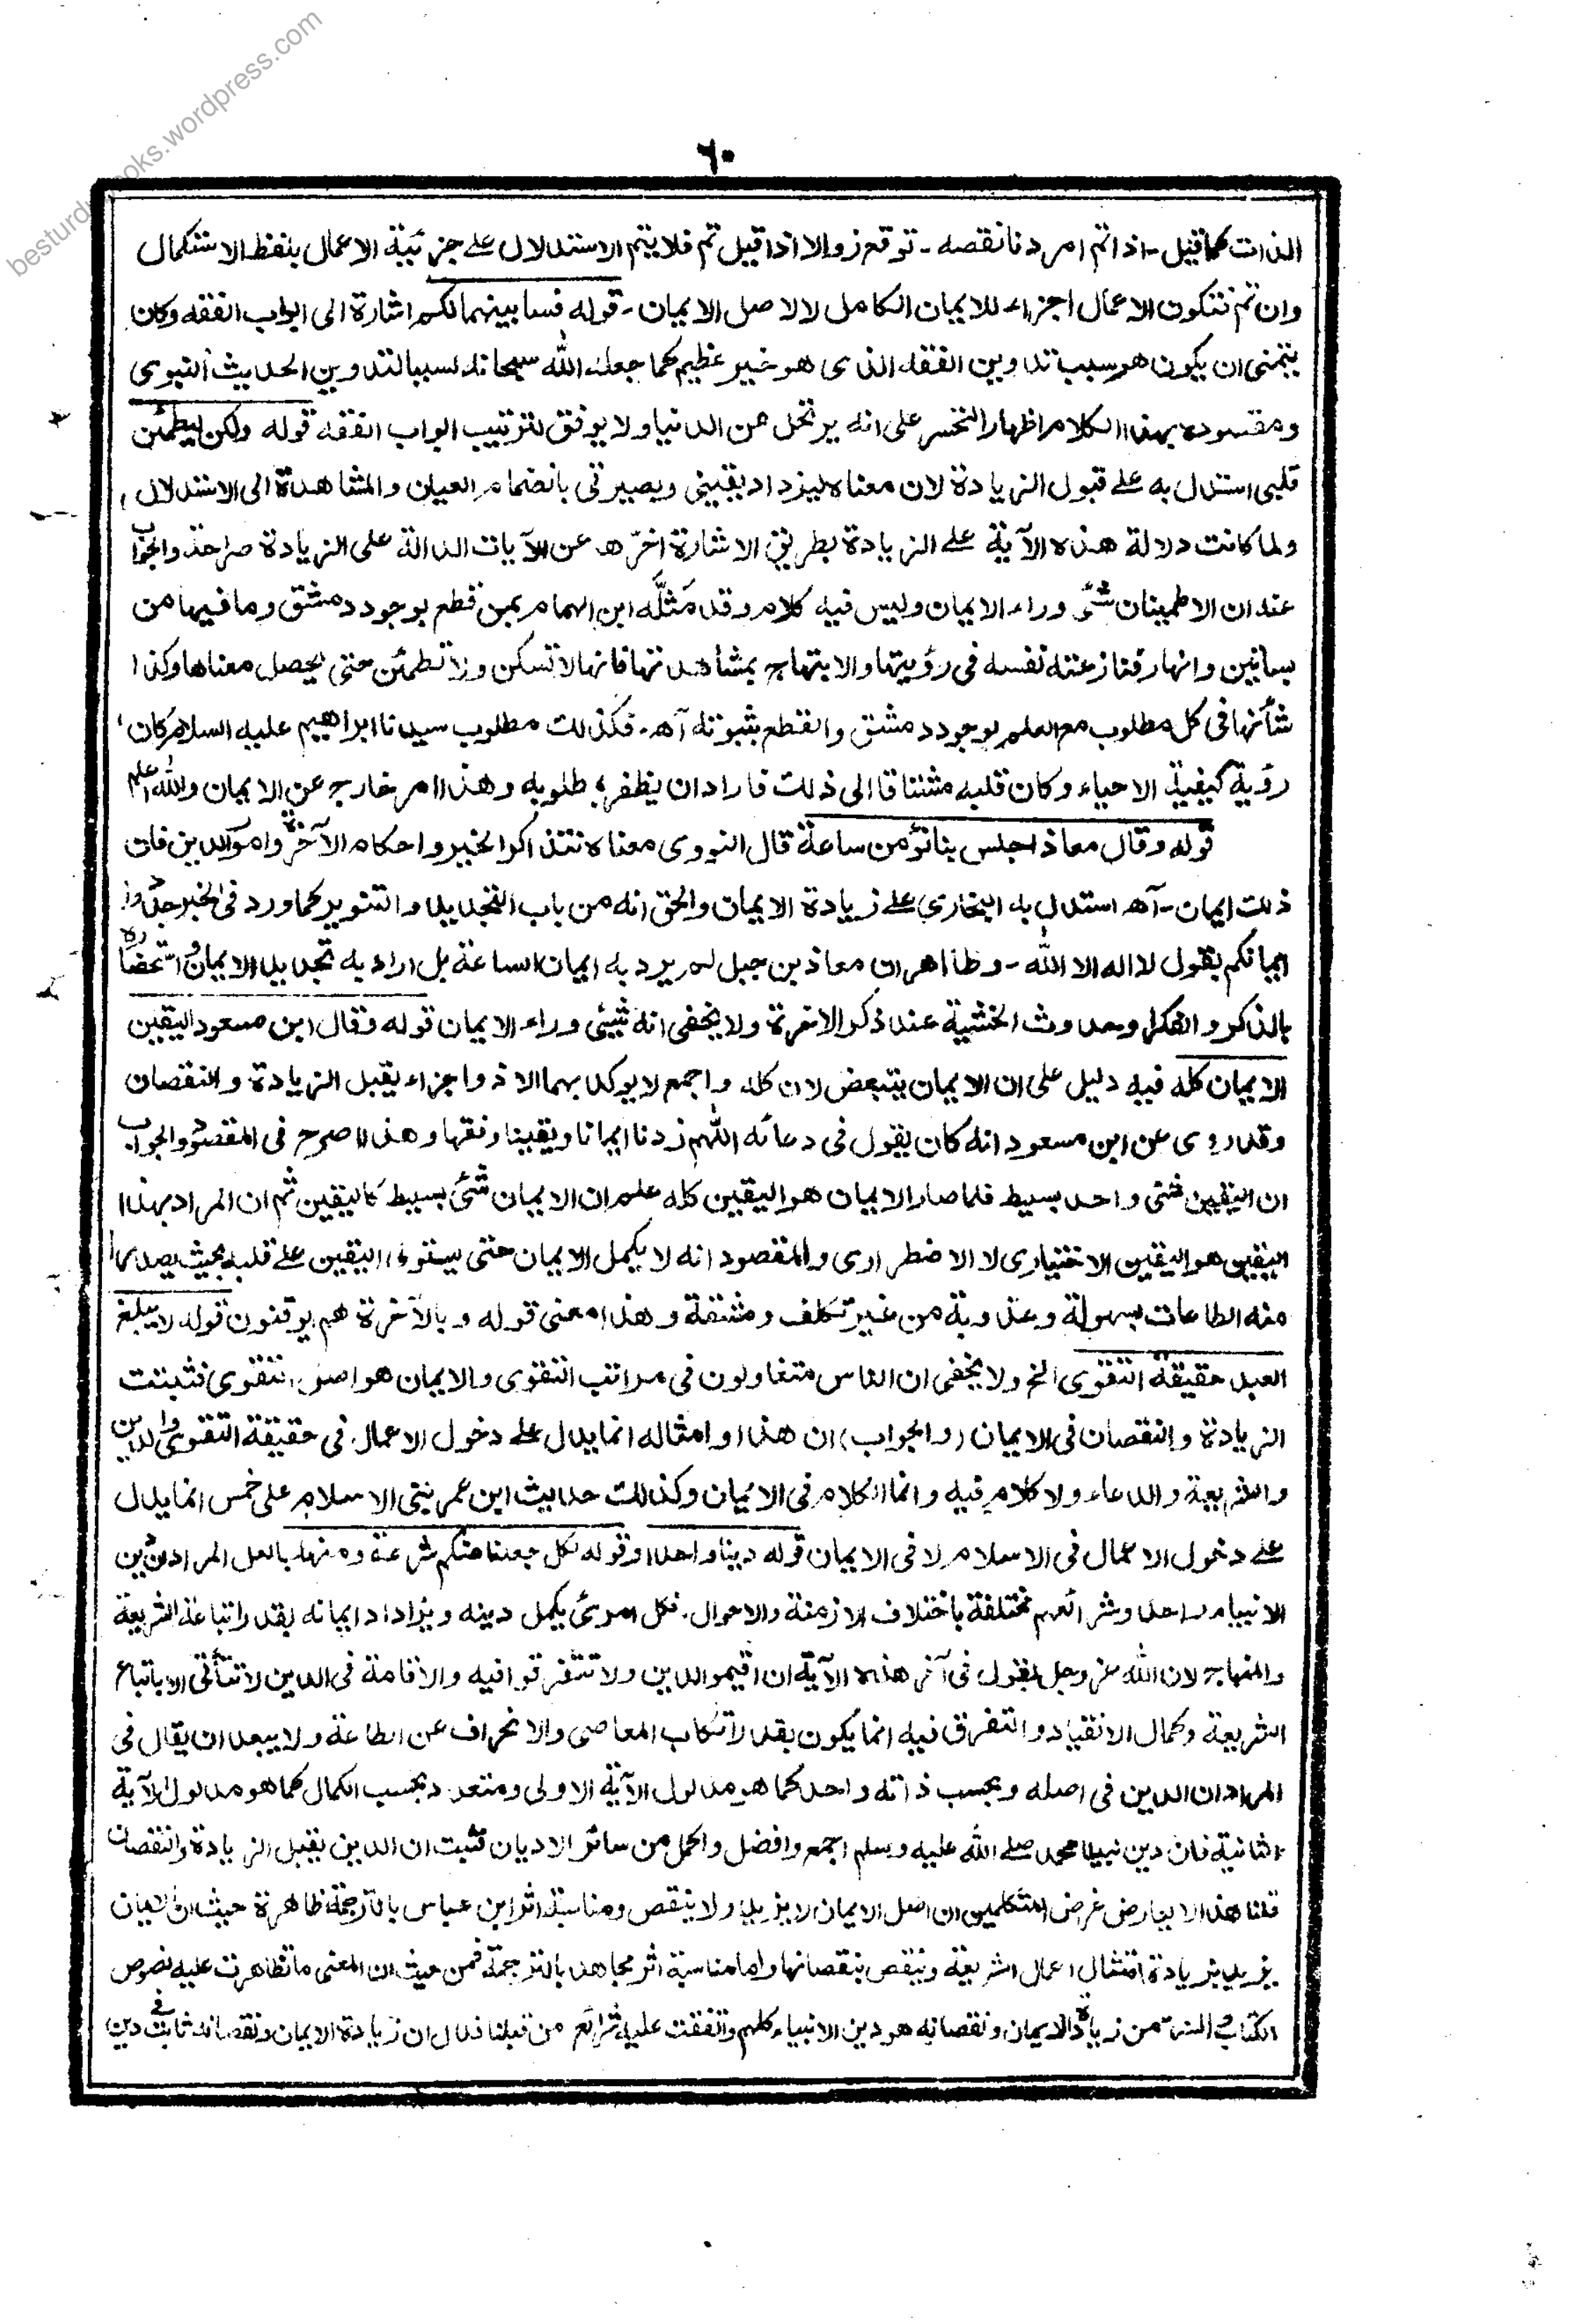 besturdubooks.wordpress.com
٦٠
الذات كما قيل ـ اذا تم امر دنا نقصه ـ توقع زوالا اذا قيل تم فلا يتم الاستدلال على جزئية الاعمال بلفظ الاستكمال
وان تم فتكون الاعمال اجزاء للايمان الكامل لا لاصل الايمان ـ قوله فسابينهما لكم اشارة الى ابواب الفقه وكان
يتمنى ان يكون هو سبب تدوين الفقه الذى هو خير عظيم كما جعله الله سبحانه لسببا لتدوين الحديث النبوى
ومقسوده بهذا الكلام اظهار التحسر على انه يرتحل من الدنيا ولا يوفق لترتيب ابواب الفقه قوله ولكن ليطمئن
قلبى استدل به على قبول الزيادة لان معناه ليزداد يقينى وبصيرتى بانضمام العيان والمشاهدة الى الاستدلال
ولما كانت دلالة هذه الآية على الزيادة بطريق الاشارة اخرها عن الآيات الدالة على الزيادة صراحة والجواب
عنه ان الاطمينان شئ وراء الايمان وليس فيه كلام وقد مثله ابن الهمام بمن قطع بوجود دمشق وما فيها من
بساتين وانهار فنازعته نفسه فى رؤيتها والابتهاج بمشاهدتها فانها لا تسكن ولا تطمئن حتى يحصل معناها وكذا
شأنها فى كل مطلوب مع العلم بوجود دمشق والقطع بثبوته آهـ ـ فكذلك مطلوب سيدنا ابراهيم عليه السلام كان
رؤية كيفية الاحياء وكان قلبه مشتاقا الى ذلك فاراد ان يظفر بمطلوبه وهذا امر خارج عن الايمان والله اعلم
قوله وقال معاذ اجلس بنا نؤمن ساعة قال النووى معناه نتذاكر الخير واحكام الآخرة وامور الدين فان
ذلك ايمان ـ آهـ استدل به البخارى على زيادة الايمان والحق انه من باب التجديد والتنوير كما ورد فى الخبر جددوا
ايمانكم بقول لا اله الا الله ـ وظاهر ان معاذ بن جبل لم يرد به ايمان الساعة بل اراد به تجديد الايمان واستحضاره
بالذكر والفكر وحدوث الخشية عند ذكر الآخرة ولا يخفى انه شيئى وراء الايمان قوله وقال ابن مسعود اليقين
الايمان كله فيه دليل على ان الايمان يتبعض لان كله واجمع لا يوكد بهما الا ذو اجزاء يقبل الزيادة والنقصان
وقد روى عن ابن مسعود انه كان يقول فى دعائه اللهم زدنا ايمانا ويقينا وفقها وهذا اصرح فى المقصود والجواب
ان اليقين شئى واحد بسيط فلما صار الايمان هو اليقين كله علم ان الايمان شئ بسيط كاليقين ثم ان المراد بهذا
اليقين هو اليقين الاختيارى لا الاضطرارى والمقصود انه لا يكمل الايمان حتى يستولى اليقين على قلبه بحيث يصدر
منه الطاعات بسهولة وعذوبة من غير تكلف ومشقة وهذا معنى قوله وبالآخرة هم يوقنون قوله لا يبلغ
العبد حقيقة التقوى الخ ولا يخفى ان الناس متفاوتون فى مراتب التقوى والايمان هو اصل التقوى فثبتت
الزيادة والنقصان فى الايمان (والجواب) ان هذا وامثاله انما يدل على دخول الاعمال فى حقيقة التقوى والدين
والشريعة والدعاء ولا كلام فيه وانما الكلام فى الايمان وكذلك حديث ابن عمر بنى الاسلام على خمس انما يدل
على دخول الاعمال فى الاسلام لا فى الايمان قوله دينا واحدا وقوله لكل جعلنا منكم شرعة ومنهاجا لعل المراد ان دين
الانبياء واحد وشرائعهم مختلفة باختلاف الازمنة والاحوال ـ فكل امرئ يكمل دينه ويزداد ايمانه بقدر اتباعه الشريعة
والمنهاج لان الله عز وجل يقول فى آخر هذه الآية ان اقيموا الدين ولا تتفرقوا فيه والاقامة فى الدين لا تتأتى الا باتباع
الشريعة وكمال الانقياد والتفرق فيه انما يكون بقدر ارتكاب المعاصى والانحراف عن الطاعة ولا يبعد ان يقال فى
المراد ان الدين فى اصله وبحسب ذاته واحد كما هو مدلول الآية الاولى ومتعدد بحسب الكمال كما هو مدلول الآية
الثانية فان دين نبينا محمد صلى الله عليه وسلم اجمع وافضل واكمل من سائر الاديان فثبت ان الدين يقبل الزيادة والنقصان
قلنا هذا لا يعارض غرض المتكلمين ان اصل الايمان لا يزيد ولا ينقص ومناسبة اثر ابن عباس بالترجمة ظاهرة حيث ان الايمان
يزيد بزيادة امتثال اعمال الشريعة وينقص بنقصانها واما مناسبة اثر مجاهد بالترجمة فمن حيث ان المعنى ما تظاهرت عليه نصوص
الكتاب والسنة من زيادة الايمان ونقصانه هو دين الانبياء كلهم واتفقت عليه شرائع من قبلنا فدل ان زيادة الايمان ونقصانه ثابت فى دين